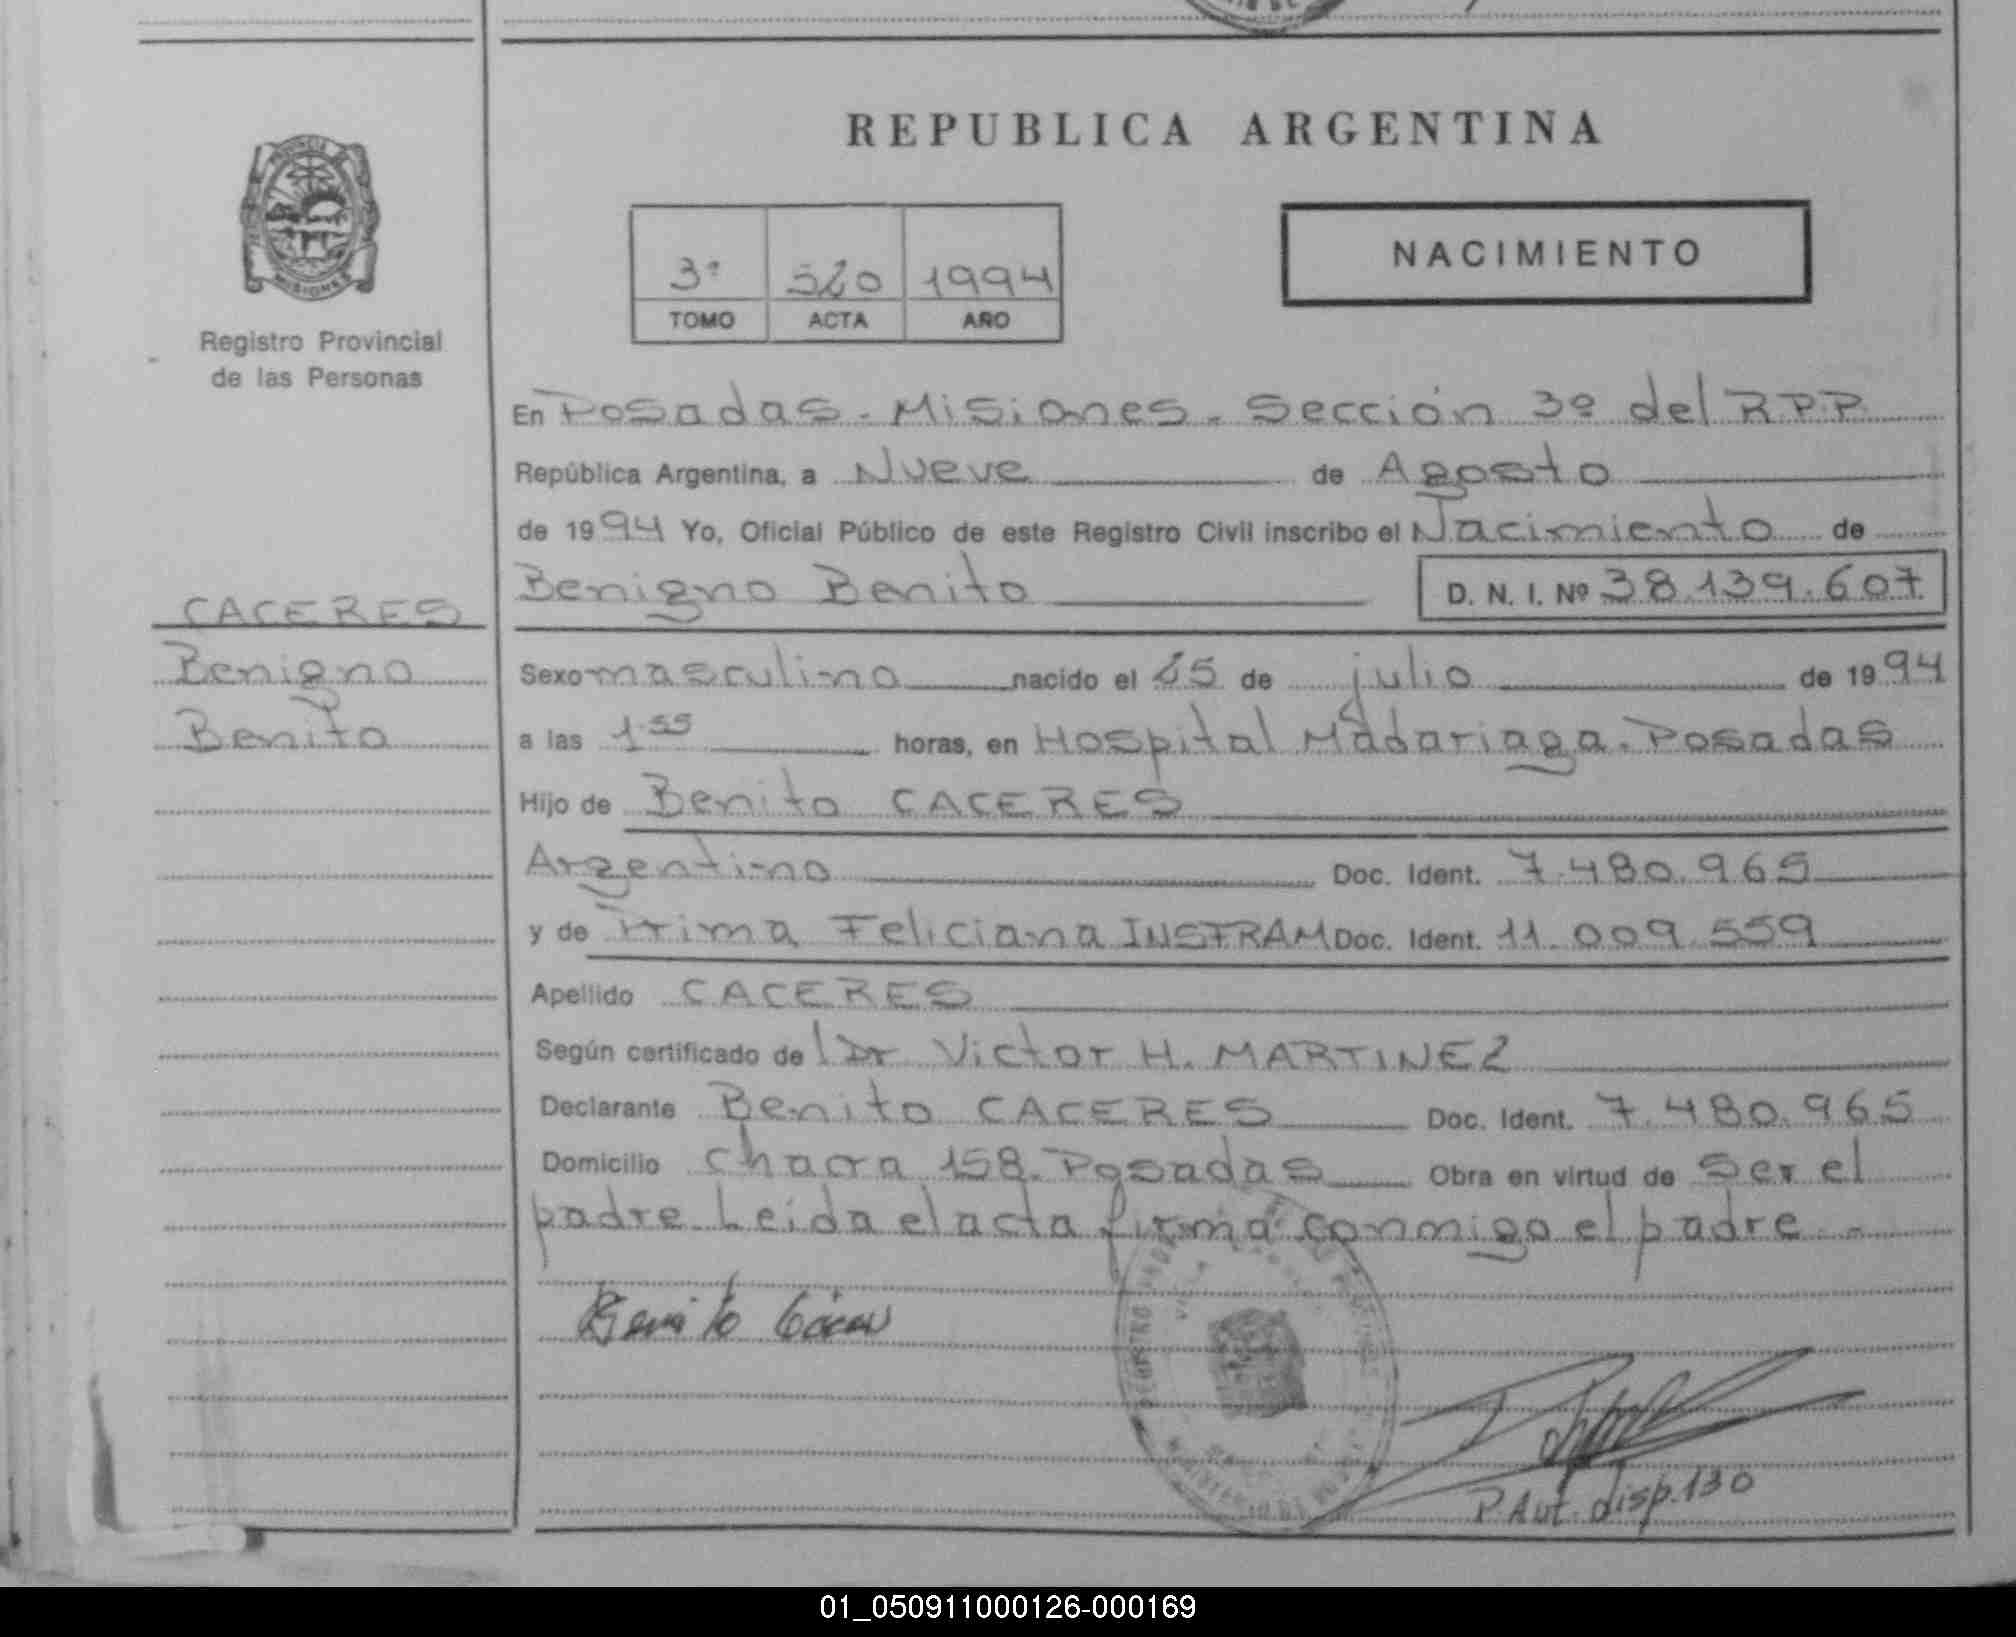 REPUBLICA ARGENTINA
MISIONES
Registro Provincial
de las Personas
NACIMIENTO
3º 520 1994
TOMO ACTA AÑO
En Posadas - Misiones - Sección 3º del R.P.P.
República Argentina, a Nueve de Agosto
de 1994 Yo, Oficial Público de este Registro Civil inscribo el Nacimiento de
Benigno Benito D. N. I. Nº 38.139.607
CACERES
Benigno
Benito
Sexo masculino nacido el 25 de julio de 1994
a las 1.55 horas, en Hospital Madariaga. Posadas
Hijo de Benito CACERES
Argentino Doc. Ident. 7.480.965
y de Prima Feliciana INSFRAM Doc. Ident. 11.009.559
Apellido CACERES
Según certificado del Dr Victor H. MARTINEZ
Declarante Benito CACERES Doc. Ident. 7.480.965
Domicilio Chacra 158. Posadas Obra en virtud de Ser el
padre Leída el acta firma conmigo el padre -
Benito Cáceres
P. Aut. disp. 130
01_050911000126-000169